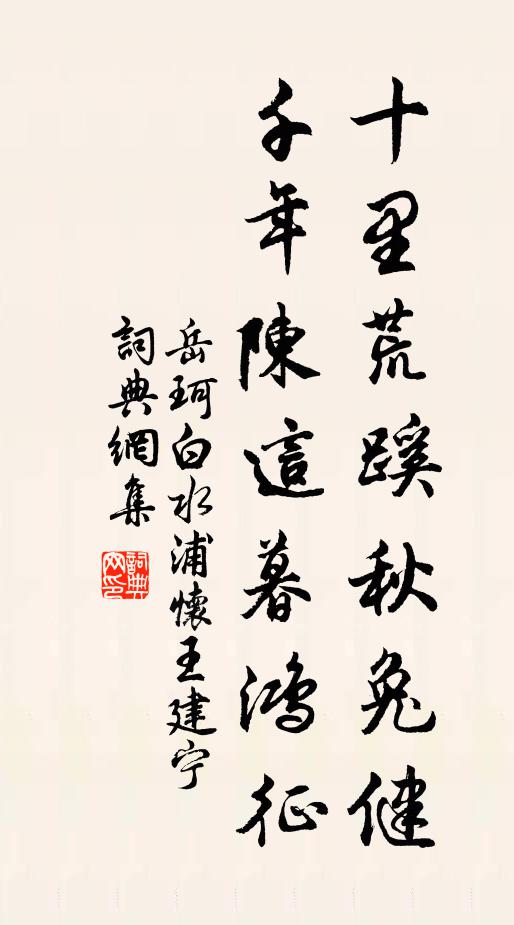 十里荒蹊秋兔健
千年陳這暮鴻征
岳珂白水浦懷王建宁
詞典網集
詞典網印